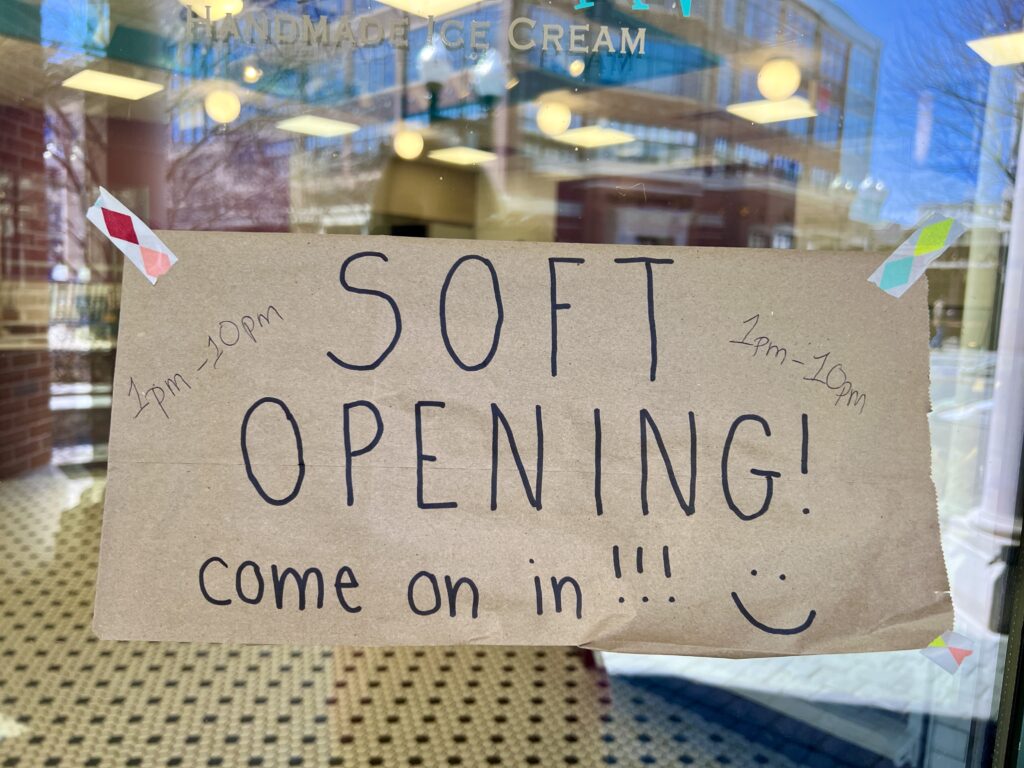 Handmade Ice Cream
SOFT
1pm-10pm
1pm-10pm
OPENING!
come on in !!!